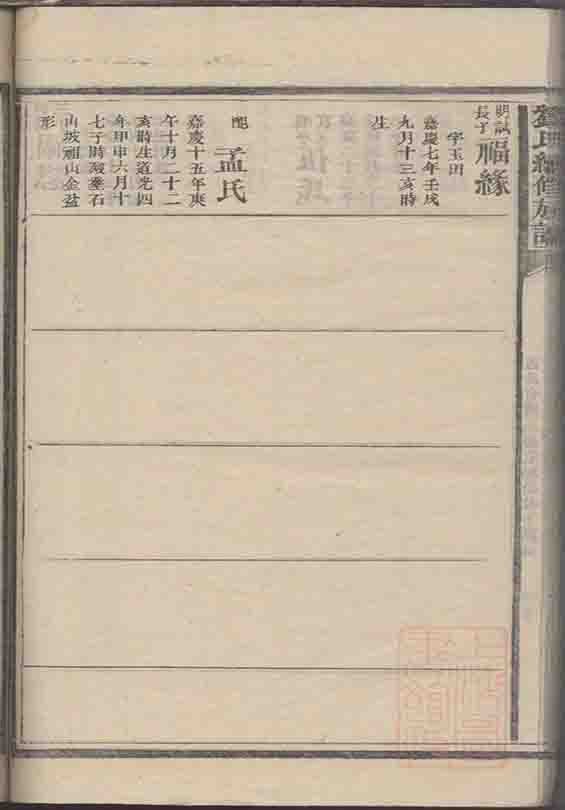 劉氏續修族譜
明誠長子 福緣
字玉田
嘉慶七年壬戌
九月十三亥時
生
配 孟氏
嘉慶十五年庚
午十月二十二
亥時生道光四
年甲申六月十
七子時歿塟石
山坡祖山金盆
形